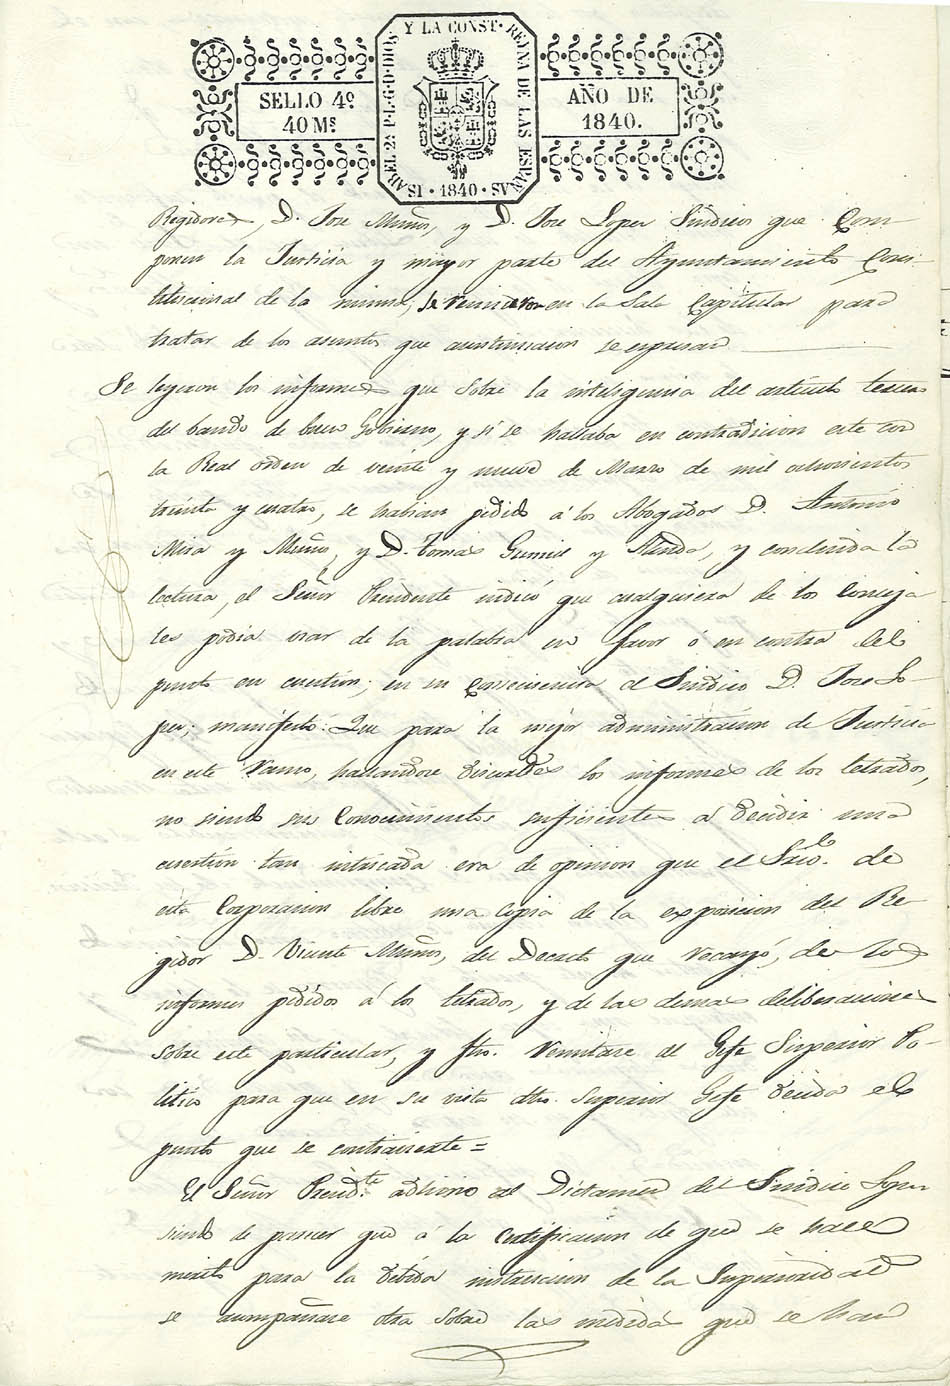 ISABEL 2ª P·L·G·D·DIOS Y LA CONST· REYNA DE LAS ESPAÑAS · 1840 ·
SELLO 4º
40 Mˢ
AÑO DE
1840.
Regidores, D. Jose Muños, y D. Jose Lopes Sindicos que Com-
ponen la Justicia y mayor parte del Ayuntamiento Cons-
titucional de la misma; se reunieron en la Sala Capitular para
tratar de los asuntos que acontinuacion se espresan
Se leyeron los informes que sobre la inteligencia del articulo tercero
del bando de buen Gobierno, y si se hallaba en contradicion este con
la Real orden de veinte y nueve de Marzo de mil ochocientos
treinta y cuatro, se habian pedido á los Abogados D. Antonio
Mira y Muños, y D. Tomas y, y concluida la
lectura, el Señor Presidente indicó que cualquiera de los conceja
les podia usar de la palabra en favor ó en contra del
punto en cuestion; en su consecuencia el Sindico D. Jose Lo-
pes; manifestó: Que para la mejor administracion de Justicia
en este ramo, hallandose discordes los informes de los letrados,
no siendo sus conocimientos suficientes á decidir una
cuestion tan intricada era de opinion que el Srio. de
esta Corporacion libre una copia de la exposicion del Re-
gidor D. Vicente Muños, del Decreto que recayó, de los
informes pedidos á los letrados, y de las demas deliberaciones
sobre este particular, y fho. remitase al Gefe Superior Po-
litico para que en su vista dho. Superior Gefe decida el
punto que se controvierte =
El Señor Presidᵗᵉ adhirio al Dictamen del Sindico Lopes
siendo de parecer que á la certificacion de que se hace
merito para la debida instruccion de la Superioridad
se acompañase otra sobre las medidas que se han